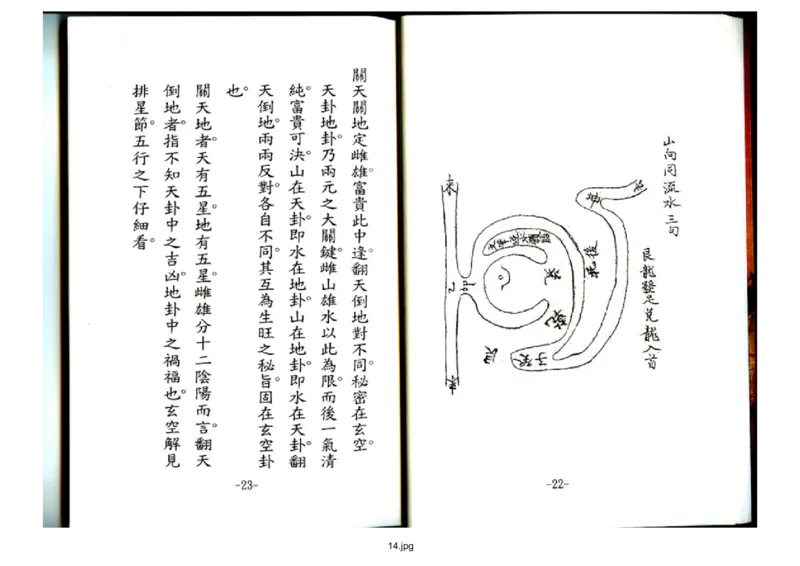 山向同流水三句
艮龍發足兌龍入首
後
艮
-22-
關天關地定雌雄。富貴此中逢翻天倒地對不同。秘密在玄空。
天卦地卦。乃兩元之大關鍵。雌山雄水以此為限。而後一氣清
純。富貴可決。山在天卦。即水在地卦。山在地卦。即水在天卦。翻
天倒地。兩兩反對。各自不同。其互為生旺之秘旨。固在玄空卦
也。
關天地者。天有五星。地有五星。雌雄分十二陰陽而言。翻天
倒地者。指不知天卦中之吉凶。地卦中之禍福也。玄空解見
排星節。五行之下仔細看。
-23-
14.jpg